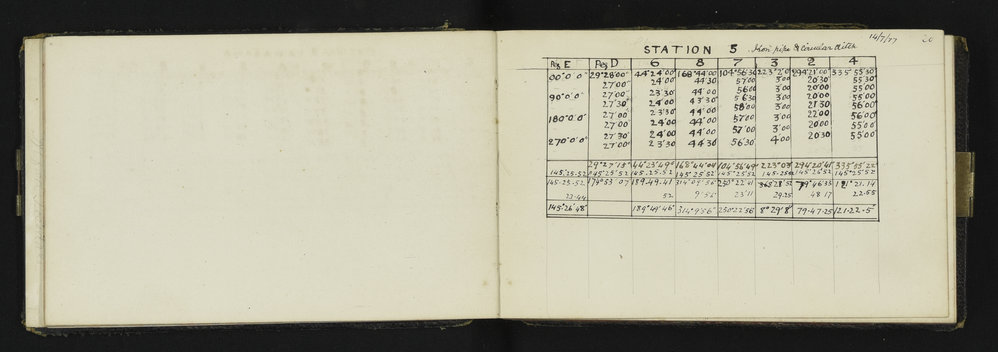 14/7/17 20
STATION 5 Iron pipe & circular ditch
Peg E Peg D 6 8 7 3 2 4
00°0'0" 29°28'00" 44°24'00" 168°44'00" 104°56'30" 223°2'0" 294°21'00" 335°55'30"
27'00" 24'00 44'30 57'00 3'00 20'30 55'30
90°0'0" 27'00 23'30 44'00 56'00 3'00 20'00 55'00
27'30" 24'00 43'30 56'30 3'00 20'00 55'00
180°0'0" 27'00 23'30 44'00 58'00 3'00 21'30 56'00
27'00 24'00 44'00 57'00 3'00 22'00 56'00
270°0'0" 27'30 24'00 44'00 57'00 3'00 20'00 55'00
27'00" 23'30 44'30 56'30 4'00 20'30 55'00
29°27'15" 44°23'49" 168°44'04" 104°56'49" 223°03' 294°20'41" 335°55'22"
145.25.52 145°25'52 145.25.52 145°25'52 145°25'52 145.25.52 145°25'52 145°25'52
145.25.52 174°53'07 189.49.41 250°22'41 368°28'52 79°46'33 121°21.14
52 9'52 23'11 29.25 48.17 22.55
145°26'48" 189°49'46" 314°9'56" 250°22'56" 8°29'8" 79.47.25 121.22.5"